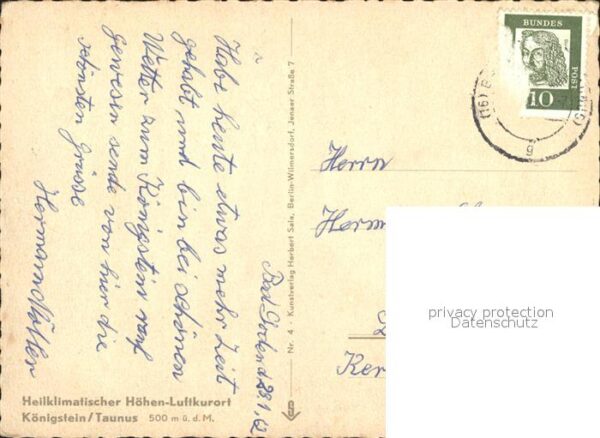 Bad Soden d 28.1.62
Habe heute etwas mehr Zeit
gehabt und bin bei schönen
Wetter zum Königstein rauf
gewesen sende von hier die
schönsten Grüsse
Hermann
Heilklimatischer Höhen-Luftkurort
Königstein/Taunus 500 m ü. d. M.
Nr. 4 · Kunstverlag Herbert Sala, Berlin-Wilmersdorf, Jenaer Straße 7
BUNDES
POST
10
(16)
Herrn
privacy protection
Datenschutz